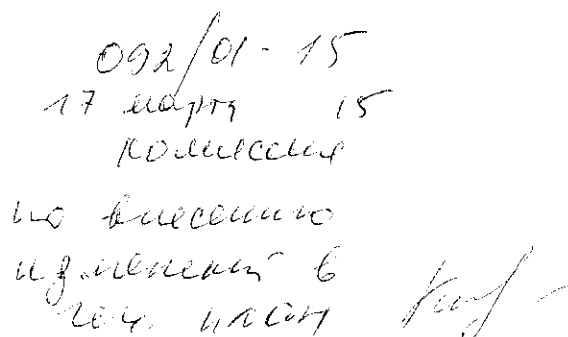 092/01-15
17 марта 15
комиссия
по внесению
изменений в
ген. план